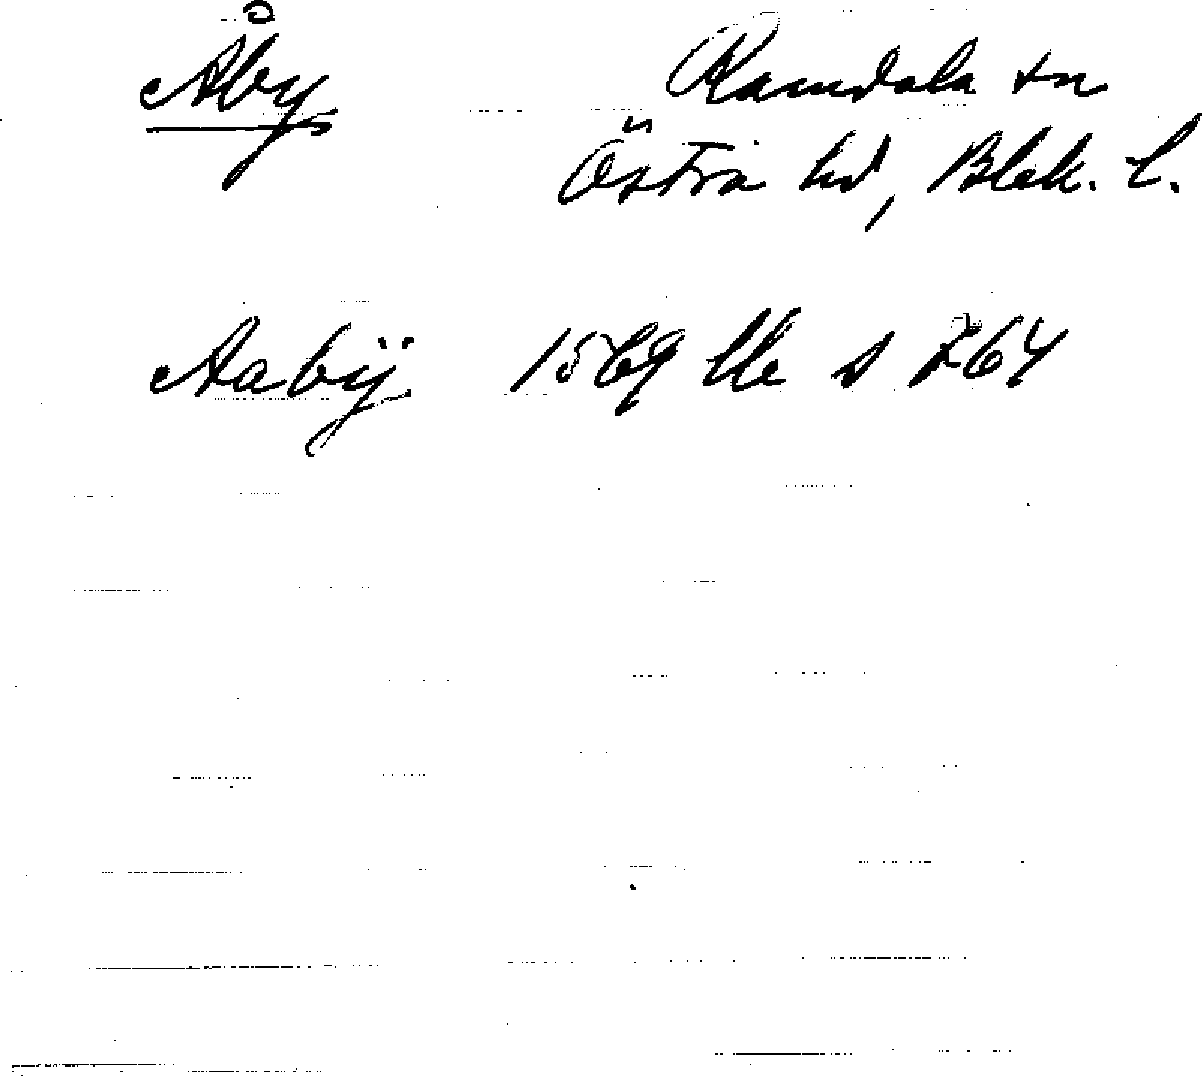 Åby Ramdala sn
Östra hd, Blek. l.
Aabÿ 1569 lle s 264